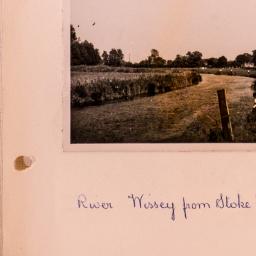 River Wissey from Stoke